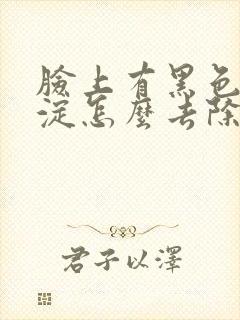 臉上有黑色
淀怎麼去除
君子以澤